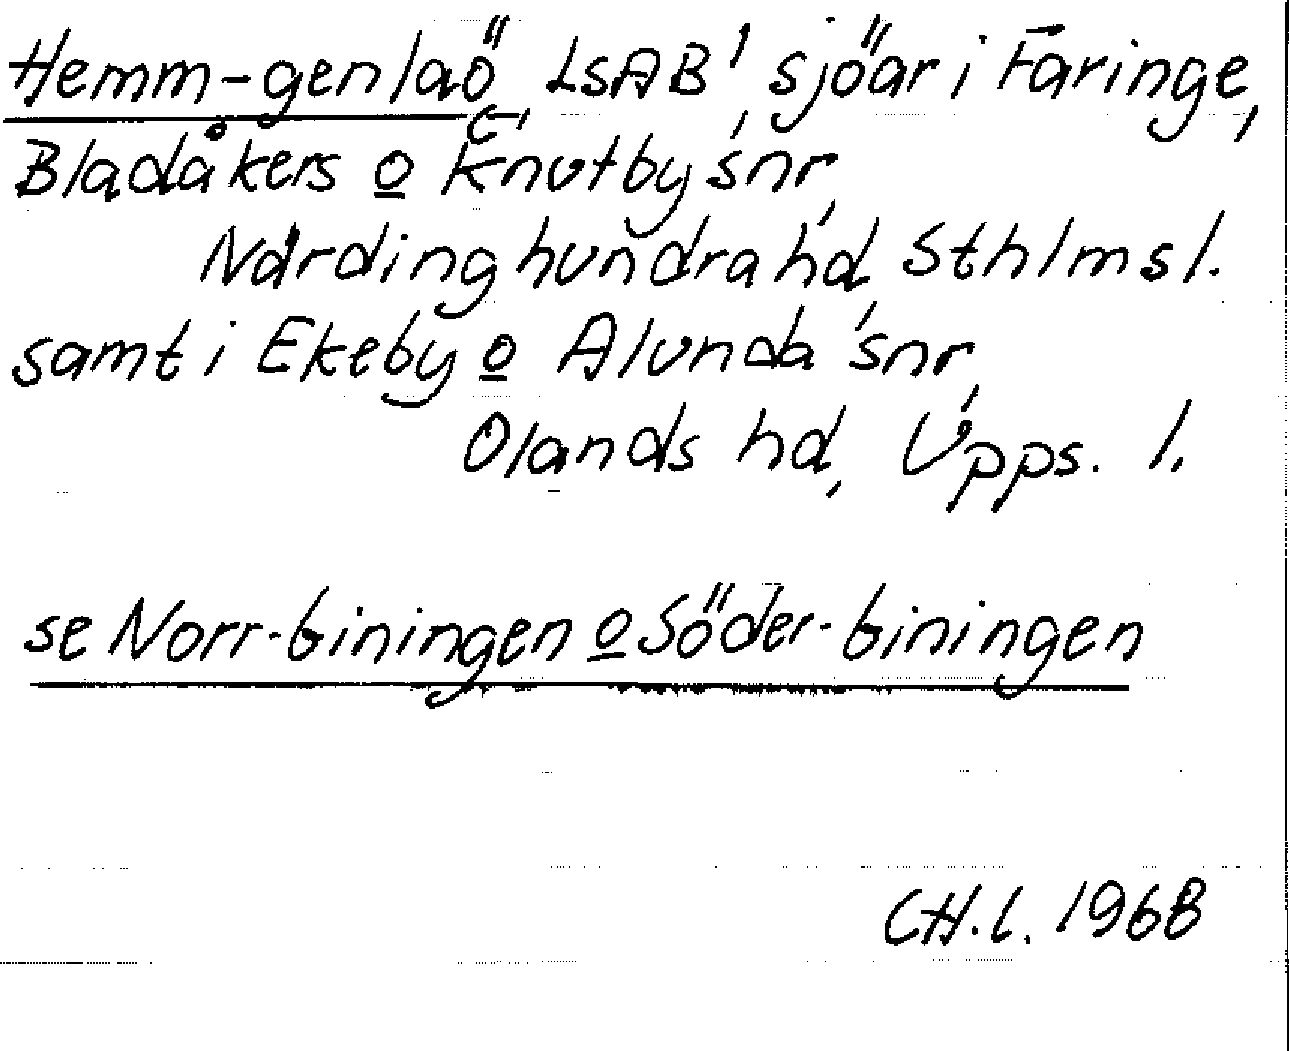 Hemm-genlaö, LSAB' sjöar i Faringe,
Bladåkers o Knutby snr,
Närdinghundra hd, Sthlms l.
samt i Ekeby o Alunda snr,
Olands hd, Upps. l.
se Norr-Giningen o Söder-Giningen
CH.L. 1968